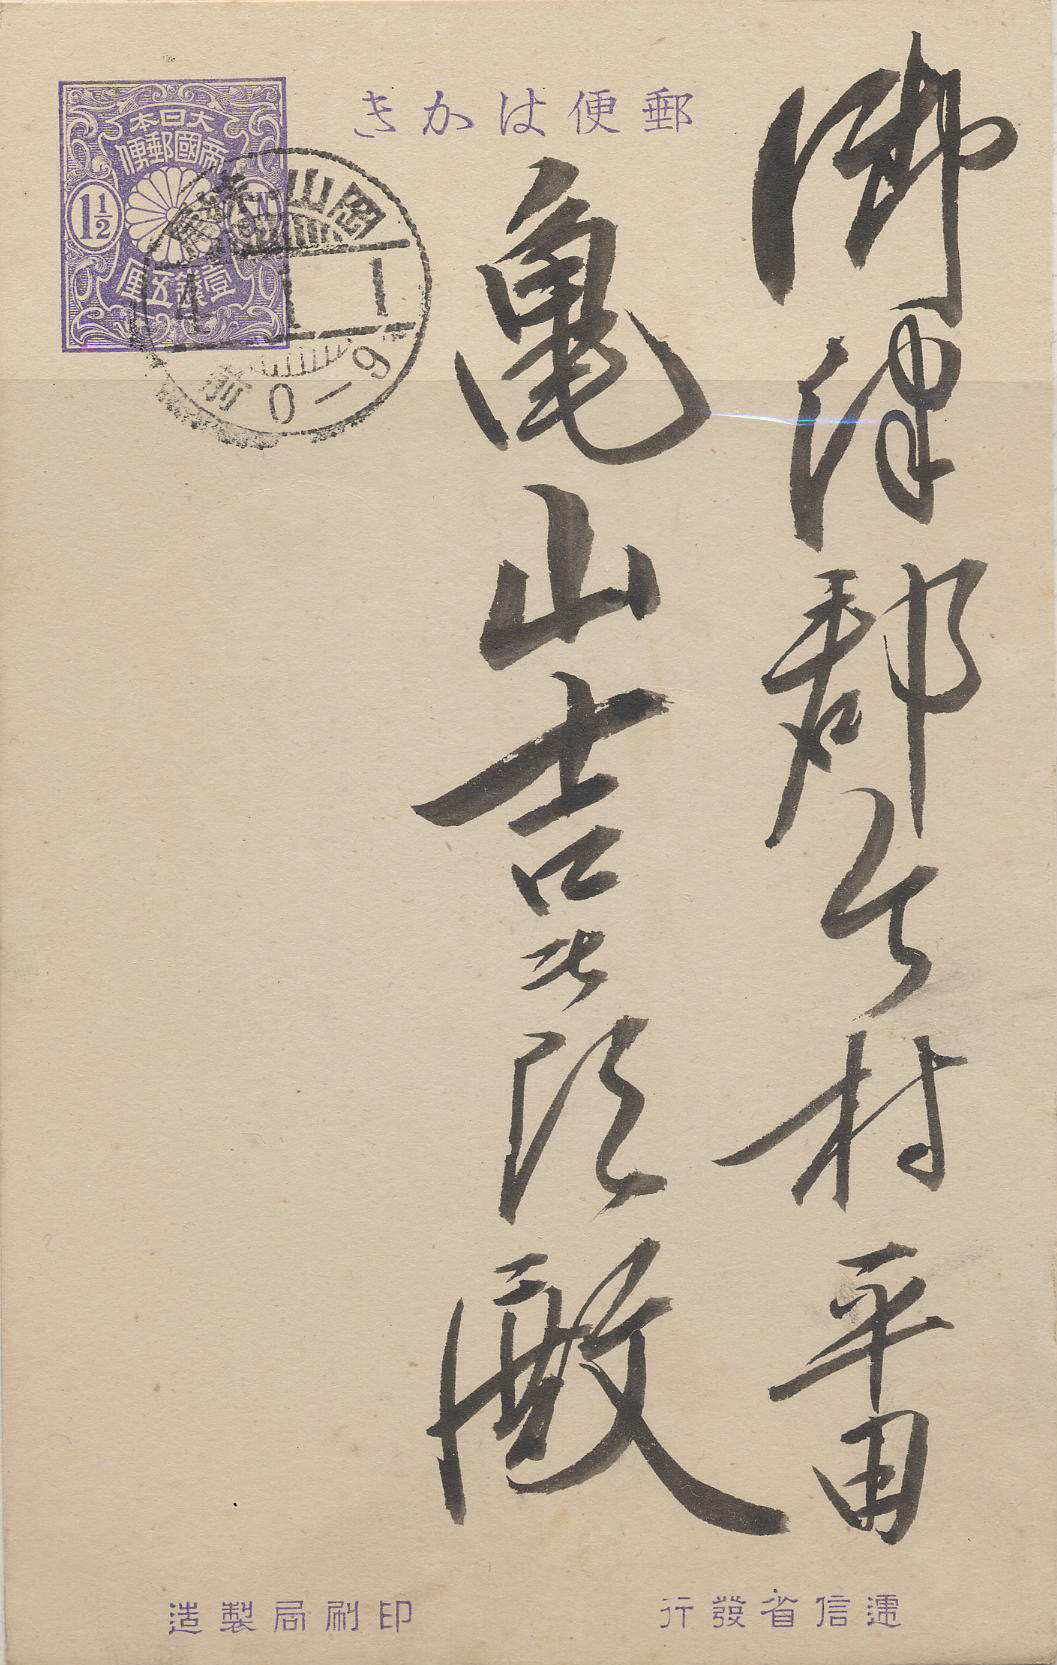 郵便はかき
大日本
帝國郵便
1½ SN
壹錢五厘
岡山
4 1 1
前 0-9
御津郡
村平田
亀山吉
殿
逓信省發行
印刷局製造